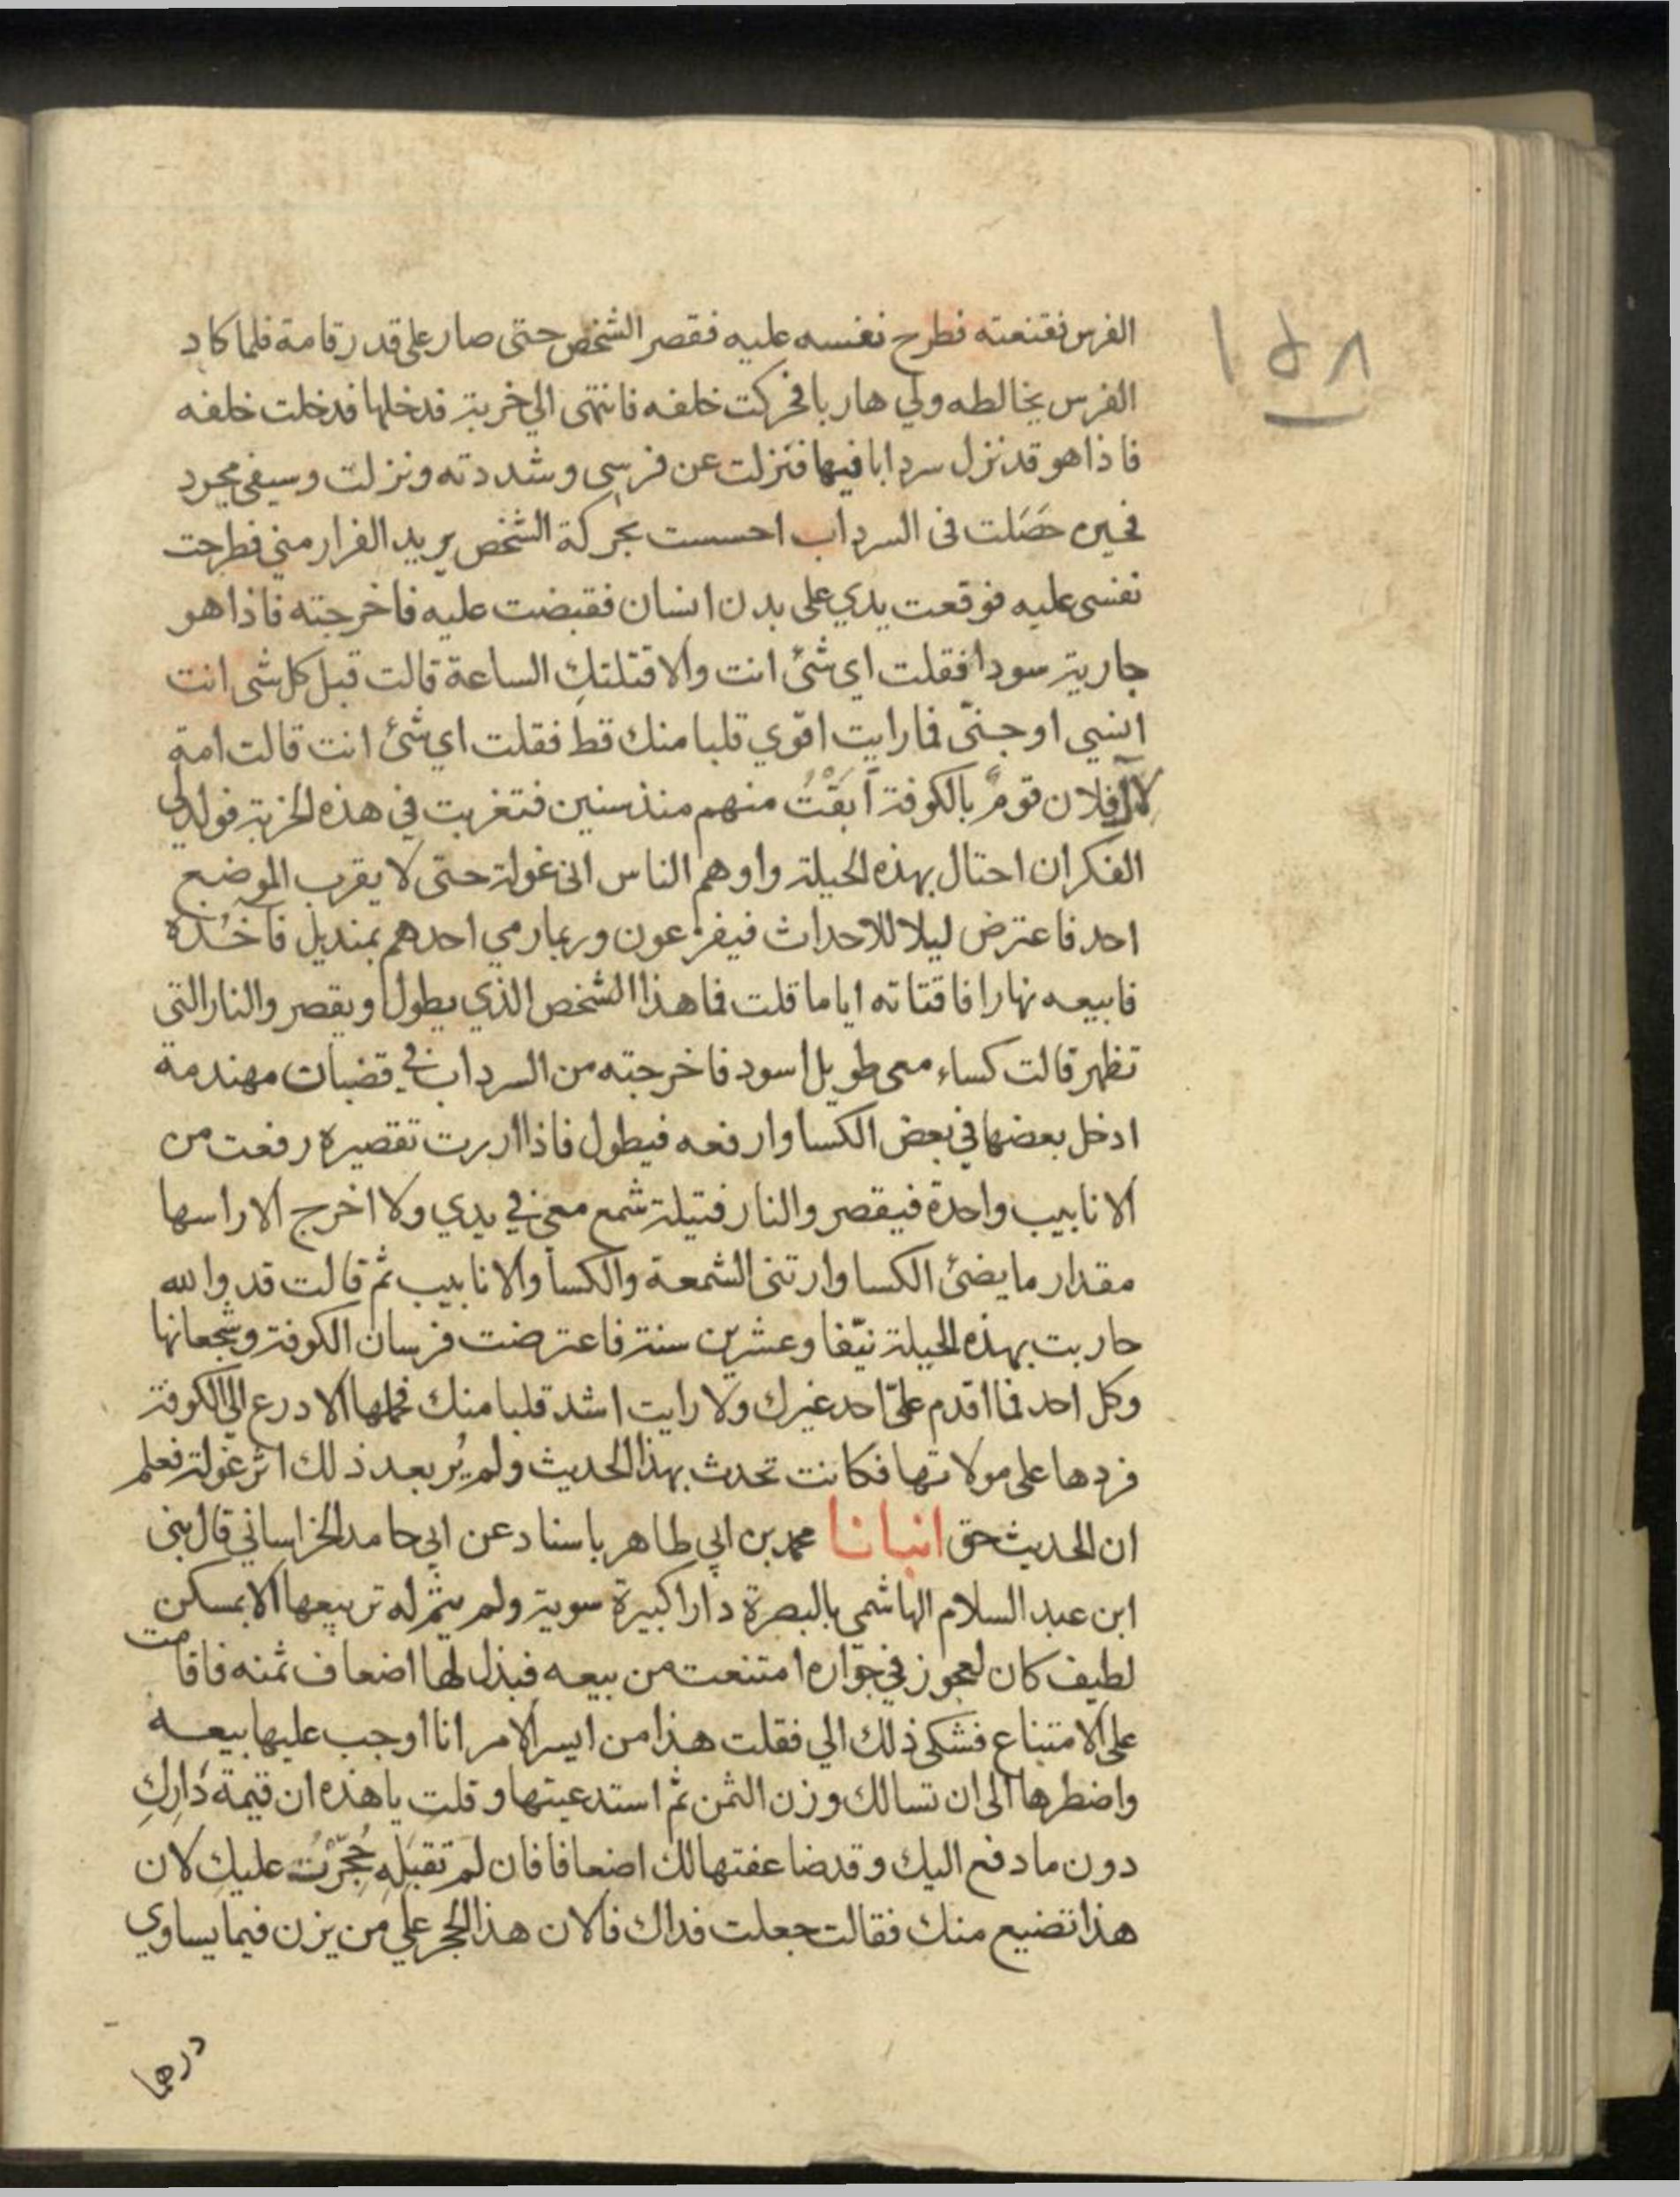 ١٥٨
الفرس فقنعته فطرح نفسه عليه فقصر الشخص حتى صار على قدر قامة فلما كاد
الفرس يخالطه ولي هاربا فحركت خلفه فانتهى الي خربة فدخلها فدخلت خلفه
فاذا هو قد نزل سردابا فيها فنزلت عن فرسي وشددته ونزلت وسيفي مجرد
فحين حَصَلت فى السرداب احسست بحركة الشخص يريد الفرار مني فطرحت
نفسى عليه فوقعت يدي على بدن انسان فقبضت عليه فاخرجته فاذا هو
جارية سودا فقلت اى شئ انت والا قتلتكِ الساعة قالت قبل كل شى انت
انسي او جنىّ فما رايت اقوي قلبا منك قط فقلت اي شئ انت قالت امة
لآل فلان قومٌ بالكوفة أبَقْتُ منهم منذ سنين فتغربت في هذه الخربة فولد لى
الفكر ان احتال بهذه الحيلة واوهم الناس انى غولة حتى لا يقرب الموضع
احد فاعترض ليلا للاحداث فيفزعون وربما رمي احدهم بمنديل فآخُذه
فابيعه نهارا فاقتاته اياما قلت فما هذا الشخص الذي يطول ويقصر والنار التى
تظهر قالت كساء معى طويل اسود فاخرجته من السرداب في قضبان مهندمة
ادخل بعضها في بعض الكسا وارفعه فيطول فاذا اردت تقصيره رفعت من
الانابيب واحدة فيقصر والنار فتيلة شمع معي في يدي ولا اخرج الا راسها
مقدار ما يضئ الكسا وارتنى الشمعة والكسا والانابيب ثم قالت قد والله
حاربت بهذه الحيلة نيّفا وعشرين سنة فاعترضت فرسان الكوفة وشجعانها
وكل احد فما اقدم علىّ احد غيرك ولا رايت اشد قلبا منك فحملها الادرع الي الكوفة
فردها على مولاتها فكانت تحدث بهذا الحديث ولم يُر بعد ذلك اثر غولة فعلم
ان الحديث حق انبانا محمد بن ابي طاهر باسناد عن ابي حامد الخراساني قال بنى
ابن عبد السلام الهاشمي بالبصرة دارا كبيرة سوية ولم يتم له تربيعها الا بمسكن
لطيف كان لعجوز في جواره امتنعت من بيعه فبذل لها اضعاف ثمنه فاقامت
على الامتناع فشكى ذلك الي فقلت هذا من ايسر الامر انا اوجب عليها بيعه
واضطرها الى ان تسالك وزن الثمن ثم استدعيتها وقلت يا هذه ان قيمة دَارِكِ
دون ما دفع اليك وقد ضاعفتها لك اضعافا فان لم تقبَلِه حُجِّرْتُ عليكِ لان
هذا تضيع منك فقالت جعلت فداك فالان هذا الحجر على من يزن فيما يساوي
درهما